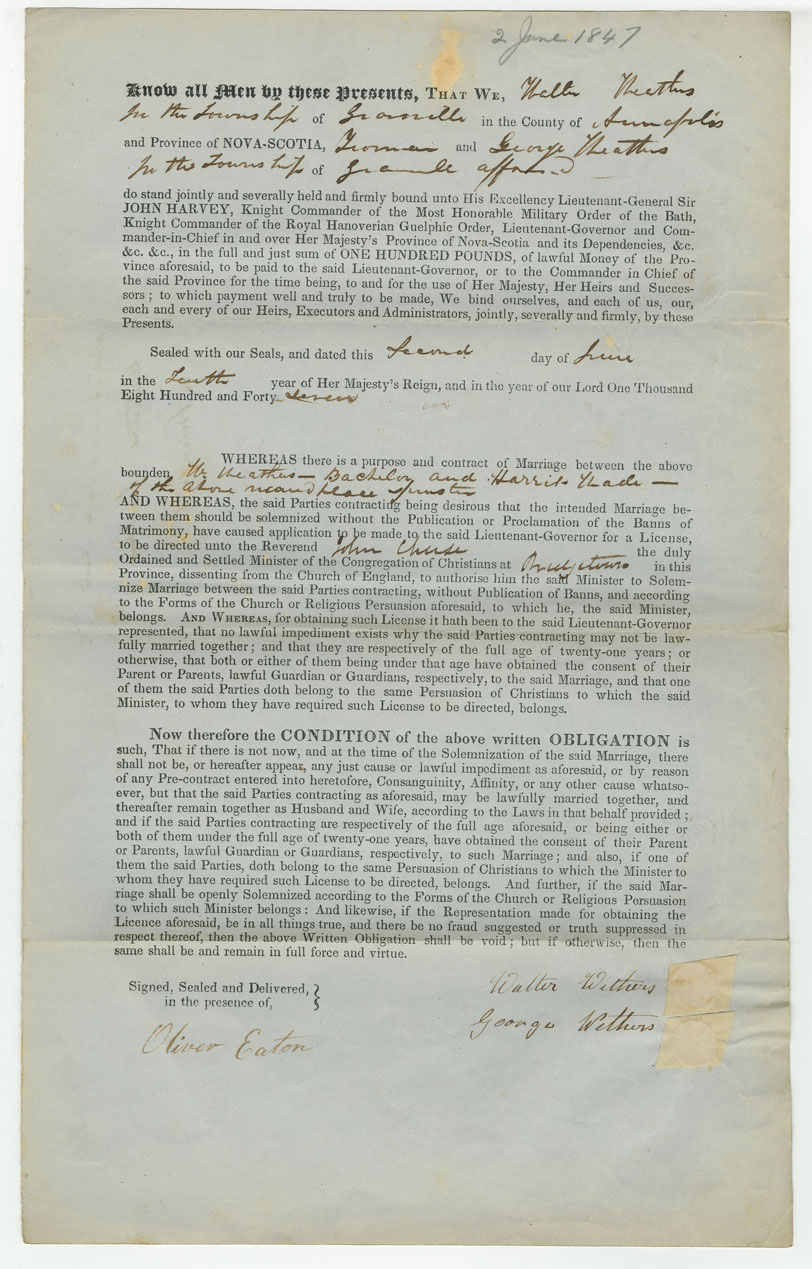 2 June 1847
Know all Men by these Presents, THAT WE, Walter Weathers
In the Township of Granville in the County of Annapolis
and Province of NOVA-SCOTIA, Yeoman and George Weathers
In the Township of Granville
do stand jointly and severally held and firmly bound unto His Excellency Lieutenant-General Sir
JOHN HARVEY, Knight Commander of the Most Honorable Military Order of the Bath,
Knight Commander of the Royal Hanoverian Guelphic Order, Lieutenant-Governor and Com-
mander-in-Chief in and over Her Majesty's Province of Nova-Scotia and its Dependencies, &c.
&c. &c., in the full and just sum of ONE HUNDRED POUNDS, of lawful Money of the Pro-
vince aforesaid, to be paid to the said Lieutenant-Governor, or to the Commander in Chief of
the said Province for the time being, to and for the use of Her Majesty, Her Heirs and Succes-
sors; to which payment well and truly to be made, We bind ourselves, and each of us, our,
each and every of our Heirs, Executors and Administrators, jointly, severally and firmly, by these
Presents.
Sealed with our Seals, and dated this Second day of June
in the Tenth year of Her Majesty's Reign, and in the year of our Lord One Thousand
Eight Hundred and Forty-seven
WHEREAS there is a purpose and contract of Marriage between the above
bounden W. Weathers - Bachelor and Harriet -
of the above place spinster
AND WHEREAS, the said Parties contracting being desirous that the intended Marriage be-
tween them should be solemnized without the Publication or Proclamation of the Banns of
Matrimony, have caused application to be made to the said Lieutenant-Governor for a License,
to be directed unto the Reverend John the duly
Ordained and Settled Minister of the Congregation of Christians at Bridgetown in this
Province, dissenting from the Church of England, to authorise him the said Minister to Solem-
nize Marriage between the said Parties contracting, without Publication of Banns, and according
to the Forms of the Church or Religious Persuasion aforesaid, to which he, the said Minister,
belongs. AND WHEREAS, for obtaining such License it hath been to the said Lieutenant-Governor
represented, that no lawful impediment exists why the said Parties contracting may not be law-
fully married together; and that they are respectively of the full age of twenty-one years; or
otherwise, that both or either of them being under that age have obtained the consent of their
Parent or Parents, lawful Guardian or Guardians, respectively, to the said Marriage, and that one
of them the said Parties doth belong to the same Persuasion of Christians to which the said
Minister, to whom they have required such License to be directed, belongs.
Now therefore the CONDITION of the above written OBLIGATION is
such, That if there is not now, and at the time of the Solemnization of the said Marriage, there
shall not be, or hereafter appear, any just cause or lawful impediment as aforesaid, or by reason
of any Pre-contract entered into heretofore, Consanguinity, Affinity, or any other cause whatso-
ever, but that the said Parties contracting as aforesaid, may be lawfully married together, and
thereafter remain together as Husband and Wife, according to the Laws in that behalf provided;
and if the said Parties contracting are respectively of the full age aforesaid, or being either or
both of them under the full age of twenty-one years, have obtained the consent of their Parent
or Parents, lawful Guardian or Guardians, respectively, to such Marriage; and also, if one of
them the said Parties, doth belong to the same Persuasion of Christians to which the Minister to
whom they have required such License to be directed, belongs. And further, if the said Mar-
riage shall be openly Solemnized according to the Forms of the Church or Religious Persuasion
to which such Minister belongs: And likewise, if the Representation made for obtaining the
Licence aforesaid, be in all things true, and there be no fraud suggested or truth suppressed in
respect thereof, then the above Written Obligation shall be void; but if otherwise, then the
same shall be and remain in full force and virtue.
Signed, Sealed and Delivered,
in the presence of,
Walter Wethers
George Wethers
Oliver Eaton